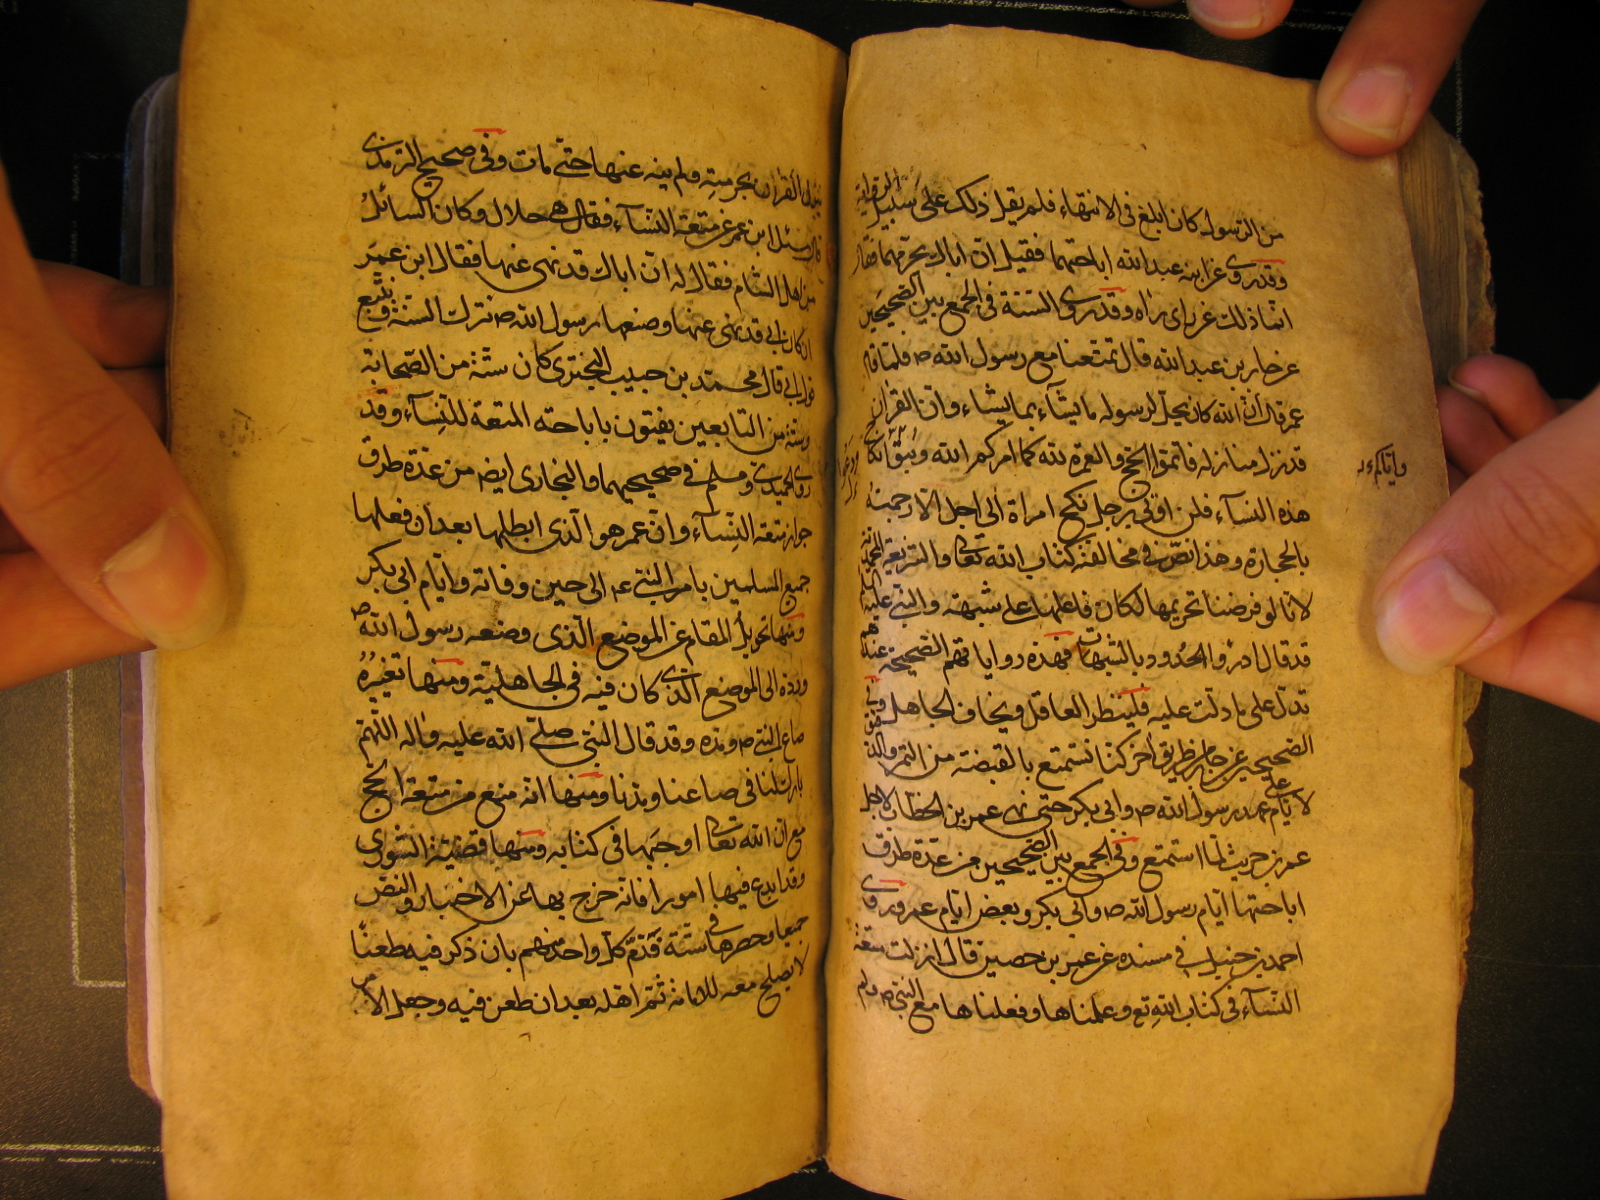 من الرسول كان ابلغ فى الانتهاء فلم يقل ذلك على سبيل الرواية
وقد روى عن ابنه عبد الله اباحتهما فقيل ان اباك يحرمهما فقال
انما ذلك عن راى راه وقد روى السنة فى الجمع بين الصحيحين
عن جابر بن عبد الله قال تمتعنا مع رسول الله ص فلما قام
عمر قال ان الله كان يحل لرسوله ما يشاء بما يشاء وان القران
قد نزل منازله فاتموا الحج والعمرة لله كما امركم الله وبتوا نكاح
واياكم
هذه النساء فلن اوتى برجل نكح امراة الى اجل الا رجمته
بالحجارة وهذا نص فى مخالفة كتاب الله تعا والشريعة المحمدية
لانا لو فرضنا تحريمها لكان فاعلها على شبهة والنبى عليه السلام
قد قال ادرؤا الحدود بالشبهات فهذه رواياتهم الصحيحة عندهم
قد تدل على ما دلت عليه فلينظر العاقل ويخاف الجاهل وفى
الصحيحين عن جابر من طريق اخر كنا نستمتع بالقبضة من التمر والدقيق
لايام على عهد رسول الله ص وابى بكر حتى نهى عمر بن الخطاب لاجل
عمر بن حريث لما استمتع وفى الجمع بين الصحيحين من عدة طرق
اباحتها ايام رسول الله ص وابى بكر وبعض ايام عمر وروى
احمد بن حنبل فى مسنده عن عمير بن حصين قال انزلت متعة
النساء فى كتاب الله تع وعلمناها وفعلناها مع النبى ص ولم
ينزل القران بحرمته ولم ينه عنها حتى مات وفى صحيح الترمذى
قال سئل ابن عمر عن متعة النساء فقال هى حلال وكان السائل
من اهل الشام فقال له ان اباك قد نهى عنها فقال ابن عمر
ان كان ابى قد نهى عنها وصنعها رسول الله ص نترك السنة ونتبع
قول ابى قال محمد بن حبيب البحترى كان ستة من الصحابة
وستة من التابعين يفتون باباحته المتعة للنساء وقد
روى الحميدى ومسلم فى صحيحيهما والبخارى ايض من عدة طرق
جواز متعة النساء وان عمر هو الذى ابطلها بعد ان فعلها
جميع المسلمين بامر النبى عم الى حين وفاته وايام ابى بكر
ومنها تحويل المقام عن الموضع الذى وضعه رسول الله ص
ورده الى الموضع الذى كان فيه فى الجاهلية ومنها تغييره
صاع النبى ص ومده وقد قال النبى صلى الله عليه واله اللهم
بارك لنا فى صاعنا ومدنا ومنها انه منع من متعة الحج
مع ان الله تعا اوجبها فى كتابه ومنها قضية الشورى
وقد ابدع فيها امورا فانه خرج بها عن الاختيار والنص
جميعا وحصرها فى ستة وذم كل واحد منهم بان ذكر فيه طعنا
لا يصلح معه للامامة ثم اهله بعد ان طعن فيه وجعل الامر